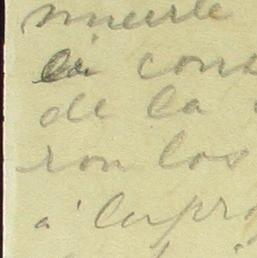 muerte
la cons
de la
ron los
a' la pro